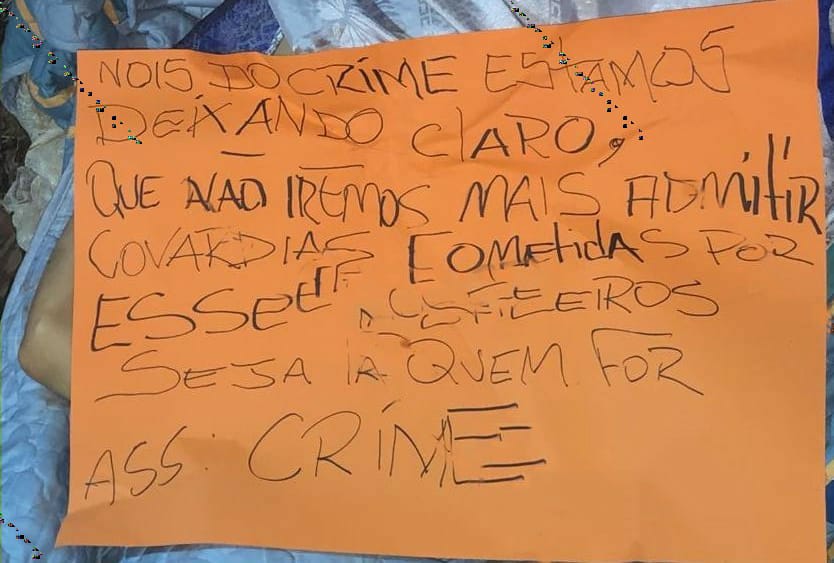 NOIS DO CRIME ESTAMOS
DEIXANDO CLARO,
QUE NÃO IREMOS MAIS ADMITIR
COVARDIAS COMETIDAS POR
SEJA LA QUEM FOR
ASS: CRIME